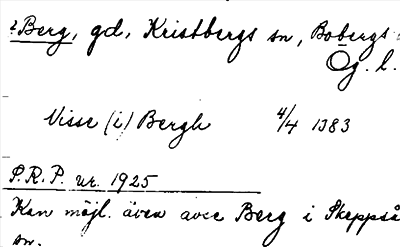 ?Berg, gd, Kristbergs sn, Bobergs
Ög. l.
Nisse (i) Bergh 4/4 1383
P.R.P. nr. 1925
Kan möjl. även avse Berg i Skeppså
sn.